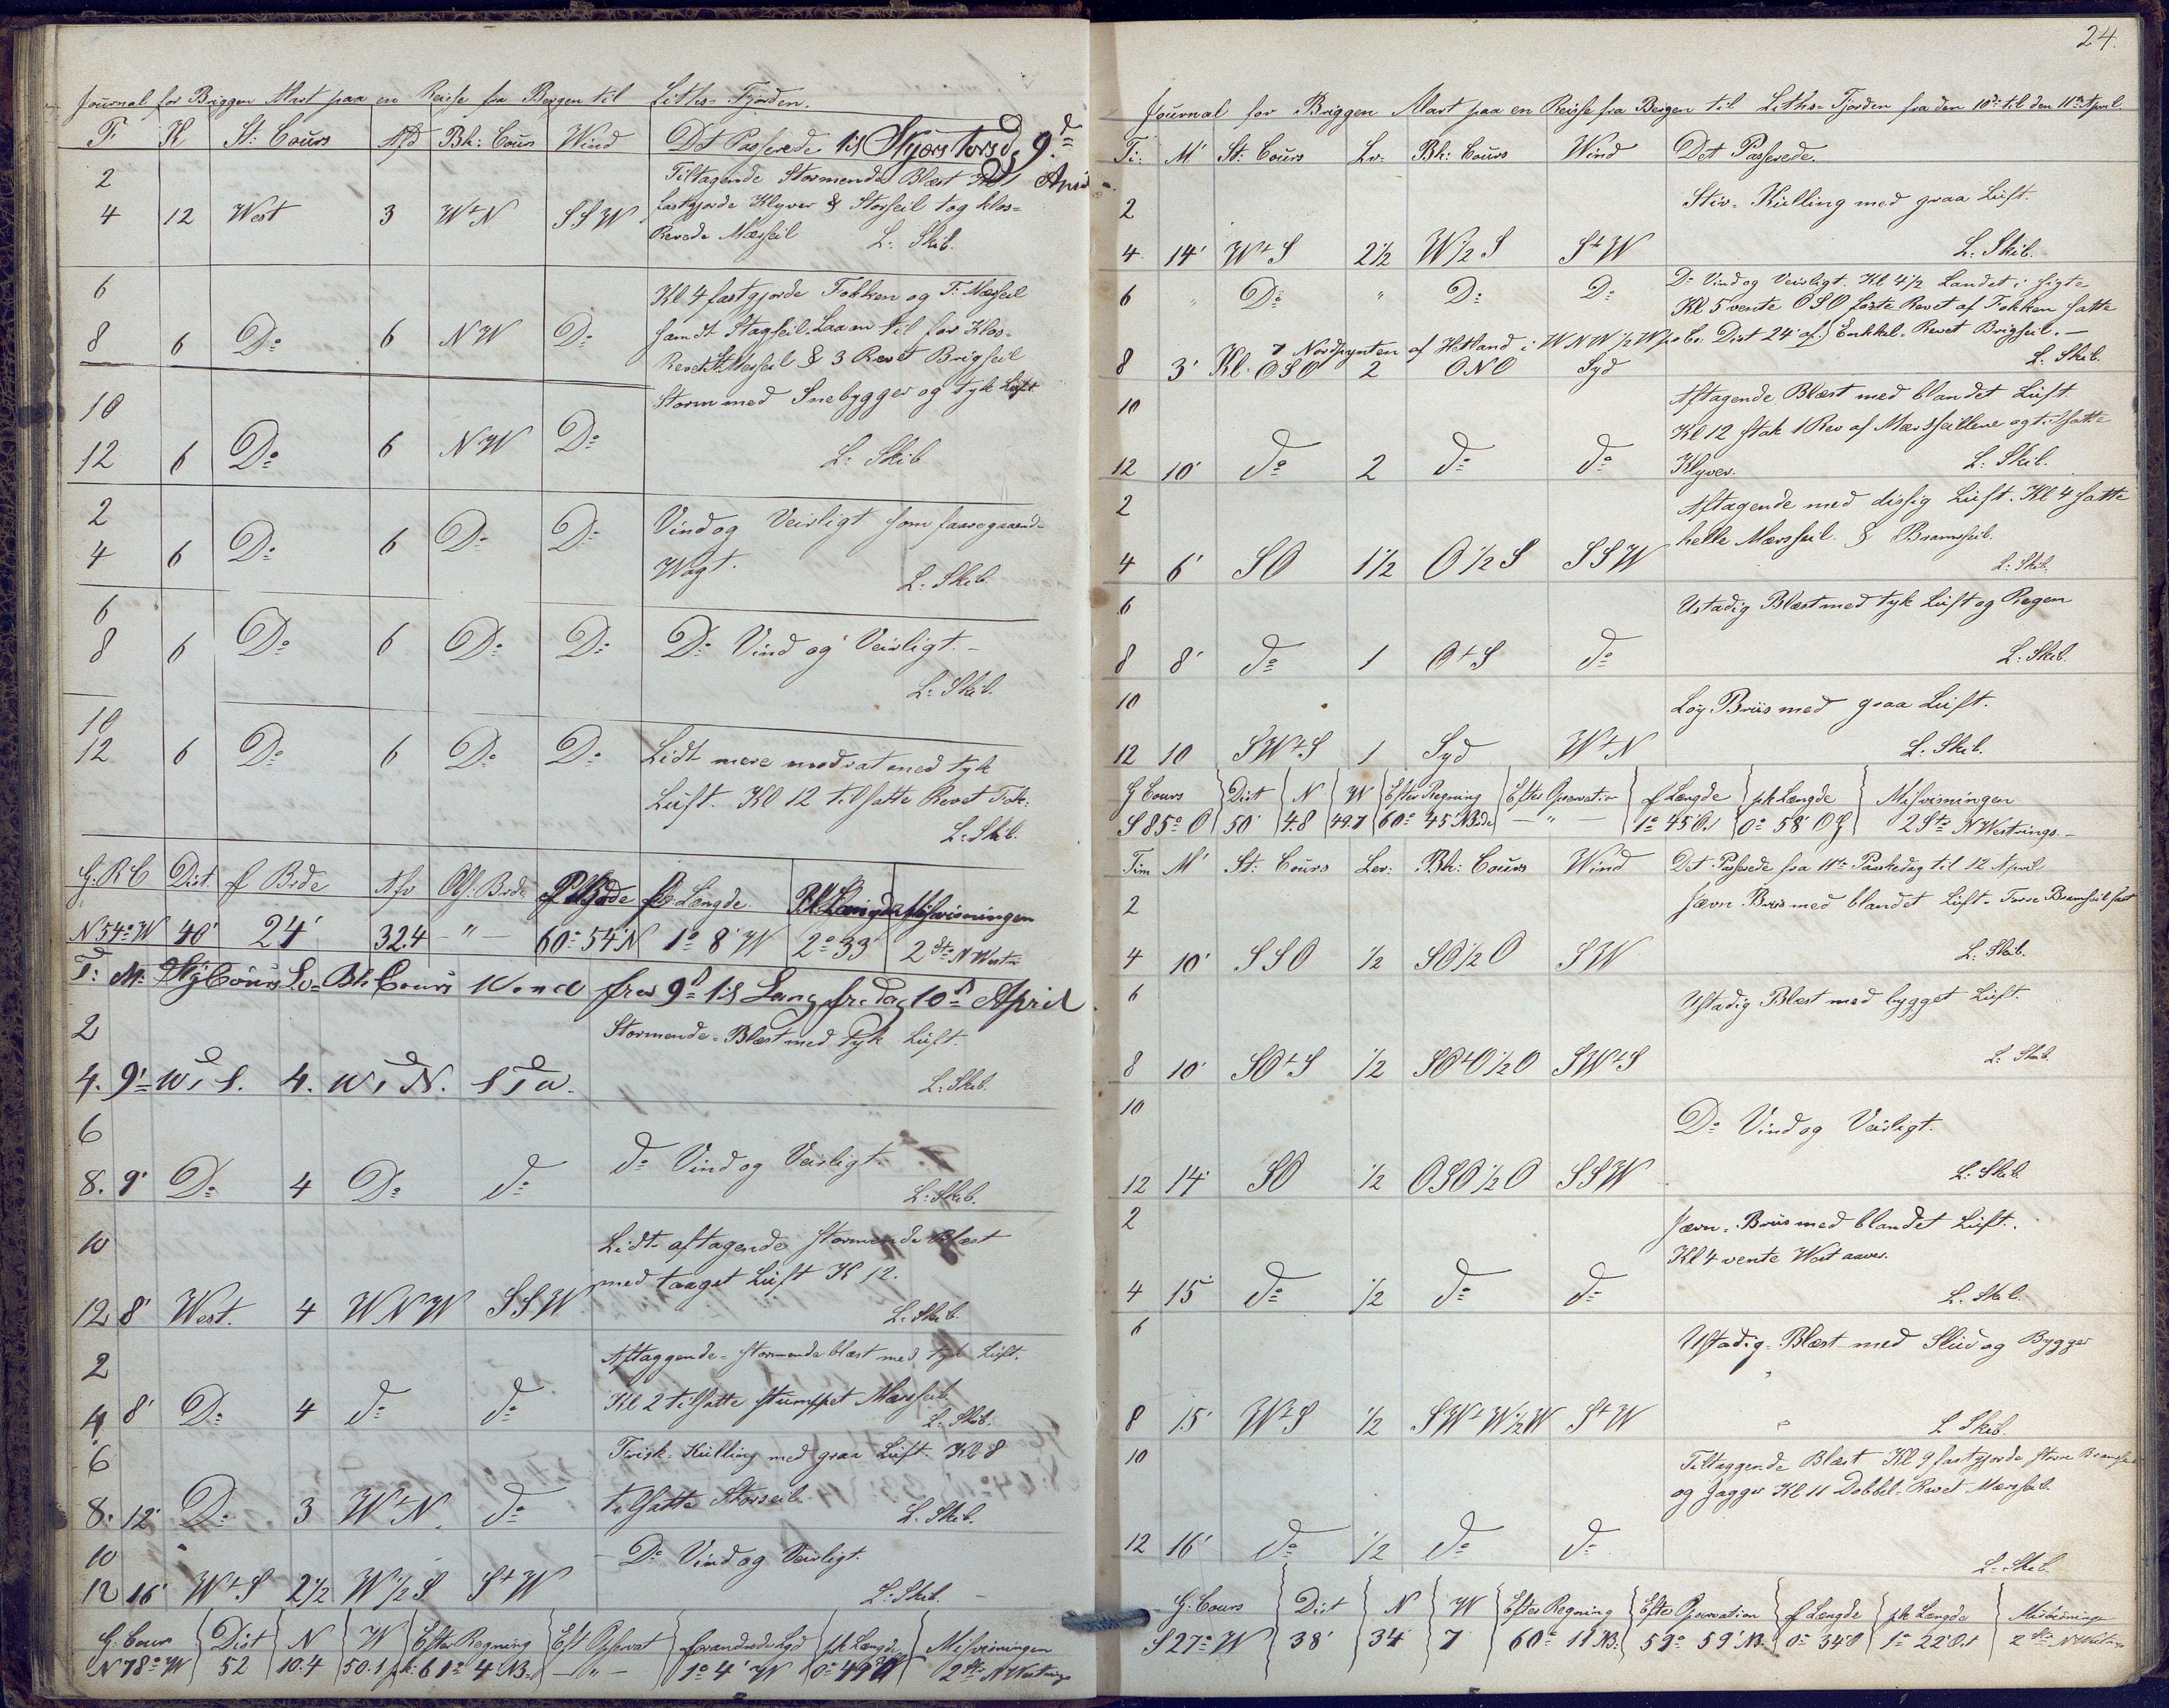 Journal for Briggen Mart paa en Reise fra Bergen til Liths-Fjorden.
T: K St: Cours Afd Bh: Cours Wind Det Passerede til Skjærs torsd. 9de April
2 Tiltagende Stormende Blæst
4 12 West 3 W t N SSW fastgjorde Klyver & Storseil tog klos-
Revede Mærsseil L: Skib.
6 Kl. 4 fastgjorde Fokken og F: Mærsseil
8 6 Do 6 NW Do samdt Stagseil. Laa an til for Klos-
Revet St. Merseil & 3 Revet Brigseil
10 Storm med Snebygger og tyk Luft
12 6 Do 6 NW Do L: Skib
2 Vind og Veirligt som faaregaaend-
4 6 Do 6 Do Do Wagt. L: Skib.
6
8 6 Do 6 Do Do Do Vind og Veirligt. -
L: Skib.
10
12 6 Do 6 Do Do Lidt mere modrat med tyk
Luft. Kl 12 tilsatte Revet Fok:
L: Skib.
G. R C Dist. f Brde Afv Obs. Brde P. Brde f Længde. Pk Længde Misvisningen
N 54° W 40' 24' 32.4 - " - 60° 54' N 1° 8' W 2° 33' 2 Str N West
T: M: Sty Cours Lv= Bh Cours Wind fra 9d til Langfredag 10d April
2 Stormende-Blæst med Tyk Luft.
4. 9' W t S. 4. W t N. S t W. L: Skib.
6 do Vind og Veirligt.
8. 9' Do 4 Do do L: Skib.
10 Lidt aftagende stormende Blæst
med taaget Luft K 12.
12 8' West. 4 WNW SSW L: Skib.
2 Aftaggende-stormende blæst med tyk Luft.
4 8' Do 4 do do Kl 2 tilsatte stumppet Mærsseil
L: Skib.
6 Frisk-Kulling med graa Luft. Kl 8
8. 12' Do 3 W t N do tilsatte Storseil. L: Skib.
10 Do Vind og Veirligt.
12 16' W t S 2½ W ½ S S t W L: Skib. -
G: Cour Dist N W Efter Regning Eft Opservat forandrede Lgd pk Længde Misvisningen
N 78° W 52 10.4 50.1 pk: 61° 4' NB: - " - 1° 4' W 0° 49' 2 Str N Westrings
24.
Journal for Briggen Mart paa en Reise fra Bergen til Liths-Fjorden fra den 10de til den 11te April.
Ti: M' St: Cours Lv: Bh: Cours Wind Det Passerede.
2 Stiv-Kulling med graa Luft.
4 14' W t S 2½ W ½ S S t W L: Skib.
6 " Do " Do Do Do Vind og Veirligt. Kl 4½ Landet i sigte
Kl 5 vente OSO førte Revet af Fokken satte
Kl. 7 Nordpynten af Hetland i WNW ½ W p. C. Dist 24' af. Enkkel-Revet Brigseil. -
8 3' OSO 2 ONO Syd L: Skib.
10 Aftagende Blæst med blandet Luft.
Kl 12 stak 1 Rev af Mærsseillene og tilsatte
12 10' do 2 do do Klyver. L: Skib.
2 Aftagende med dissig Luft. Kl 4 satte
helle Mærsseil & Bramseil.
4 6' SO 1½ O ½ S SSW L: Skib.
6 Ustadig Blæst med tyk Luft og Regen
8 8' do 1 O t S do L: Skib.
10 Løy Briis med graa Luft.
12 10 SW t S 1 Syd W t N L: Skib.
G Cours Dist N W Efter Regning Efter Opservation f Længde pk Længde Misvisningen
S 85° O 50' 4.8 49.7 60° 45' NBde - " - 1° 45' O. 0° 58' O G 2 Str N Westrings. -
Tim M' St: Cours Lev: Bh: Cours Wind Det Passerede fra 11te Paaskedag til 12 April
2 Jævn Briis med blandet Luft-Torre Bramseil fast
4 10' SSO ½ SO ½ O SW L: Skib.
6 Ustadig Blæst med bygget Luft.
8 10' SO t S ½ SO t O ½ O SW t S L: Skib.
10 Do Vind og Veirligt.
12 14' SO ½ OSO ½ O SSW L: Skib.
2 Jævn-Briis med blandet Luft.
Kl 4 vente West aaver.
4 15' do ½ do do L: Skib.
6 Ustadig-Blæst med Slud og Bygger
8 15' W t S ½ SW t W ½ W S t W L Skib.
10 Tiltaggende Blæst Kl 9 fastgjorde store Bramseil
og Jagger Kl 11 Dobbel-Revet Mærseil.
12 16' do ½ do do
L: Skib.
G: Cours Dist N W Efter Regning Efter Opservation f Længde pk Længde Misvisninge
S 27° W 38' 34 7 60° 11' NB: 59° 59' NB. 0° 34' O 1° 22' O. 2 Str N Westrings